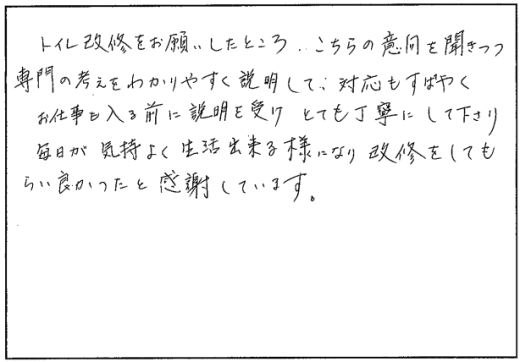 トイレ改修をお願いしたところ、こちらの意向を聞きつつ
専門の考えをわかりやすく説明して、対応もすばやく
お仕事も入る前に説明を受け とても丁寧にして下さり
毎日が気持よく生活出来る様になり 改修をしても
らい良かったと感謝しています。